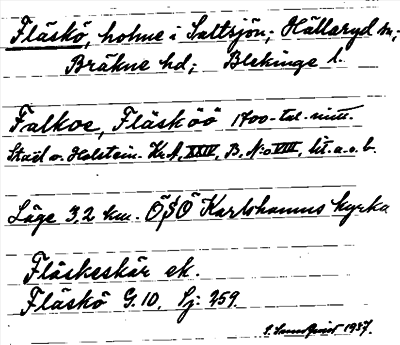 Fläskö, holme i Saltsjön; Hällaryd sn;
Bräkne hd; Blekinge l.
Falkoe, Fläsköö 1700-tal. nim.
Staël v. Holstein. Kr. A. XXIV, B. N:o VIII, lit. a. o. b.
Läge 3,2 km. ÖSÖ Karlshamns kyrka
Fläskeskär ek.
Fläskö G. 10, Sj: 259.
1937.